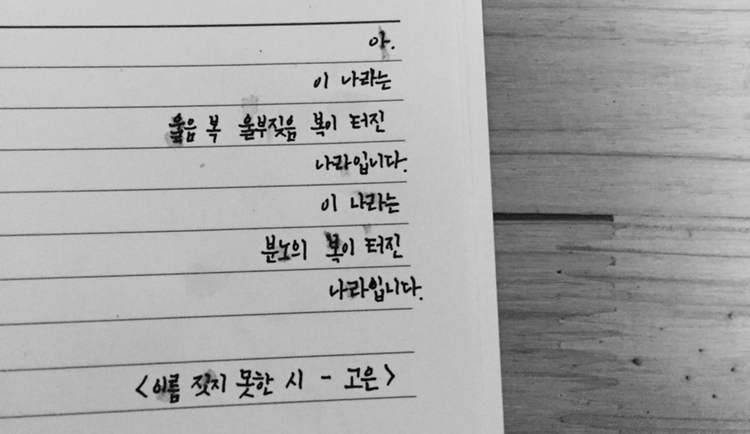 아.
이 나라는
울음 복 울부짖음 복이 터진
나라입니다.
이 나라는
분노의 복이 터진
나라입니다.
<이름 짓지 못한 시 - 고은>